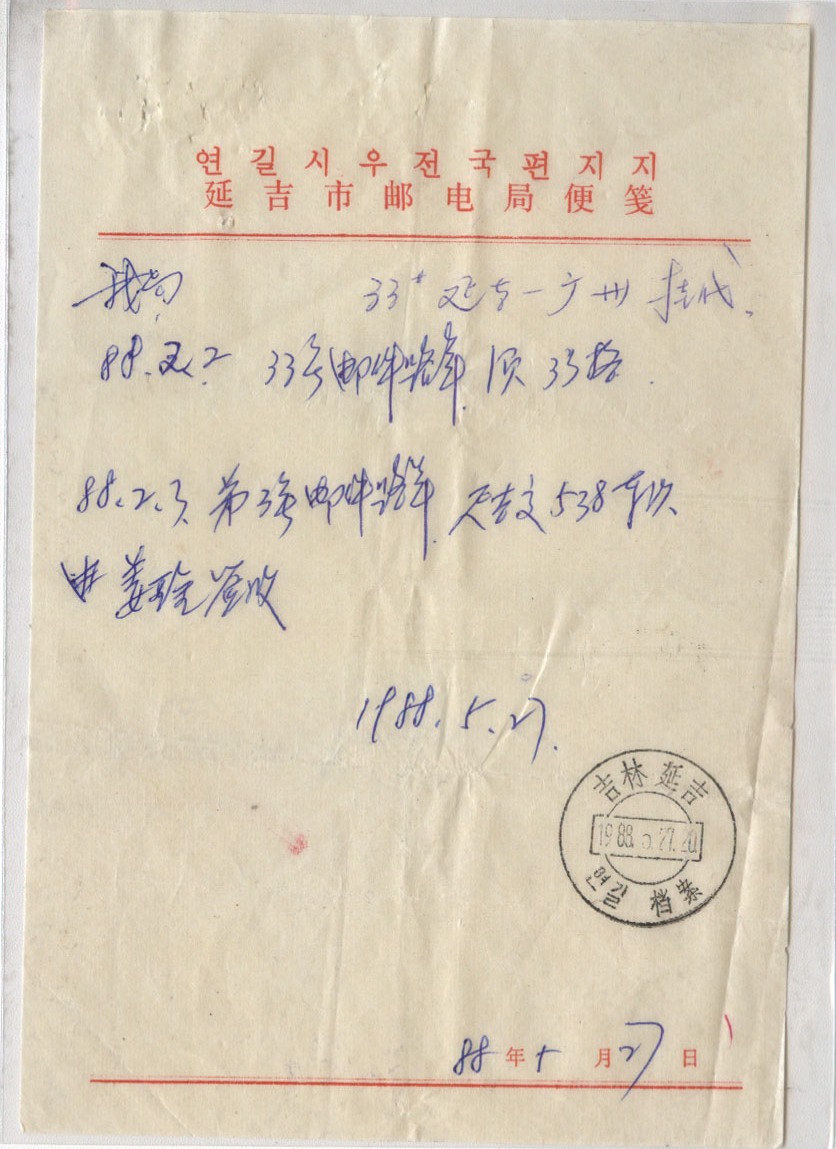 연길시우전국편지지
延吉市邮电局便笺
我局 33# 延吉—广州 挂
88.2.2 33号邮件路单
88.2.3. 第3号邮件路单 538车次
姜 签收
1988.5.27.
吉林 延吉
1988.5.27.20
연길 档案
88年5月27日